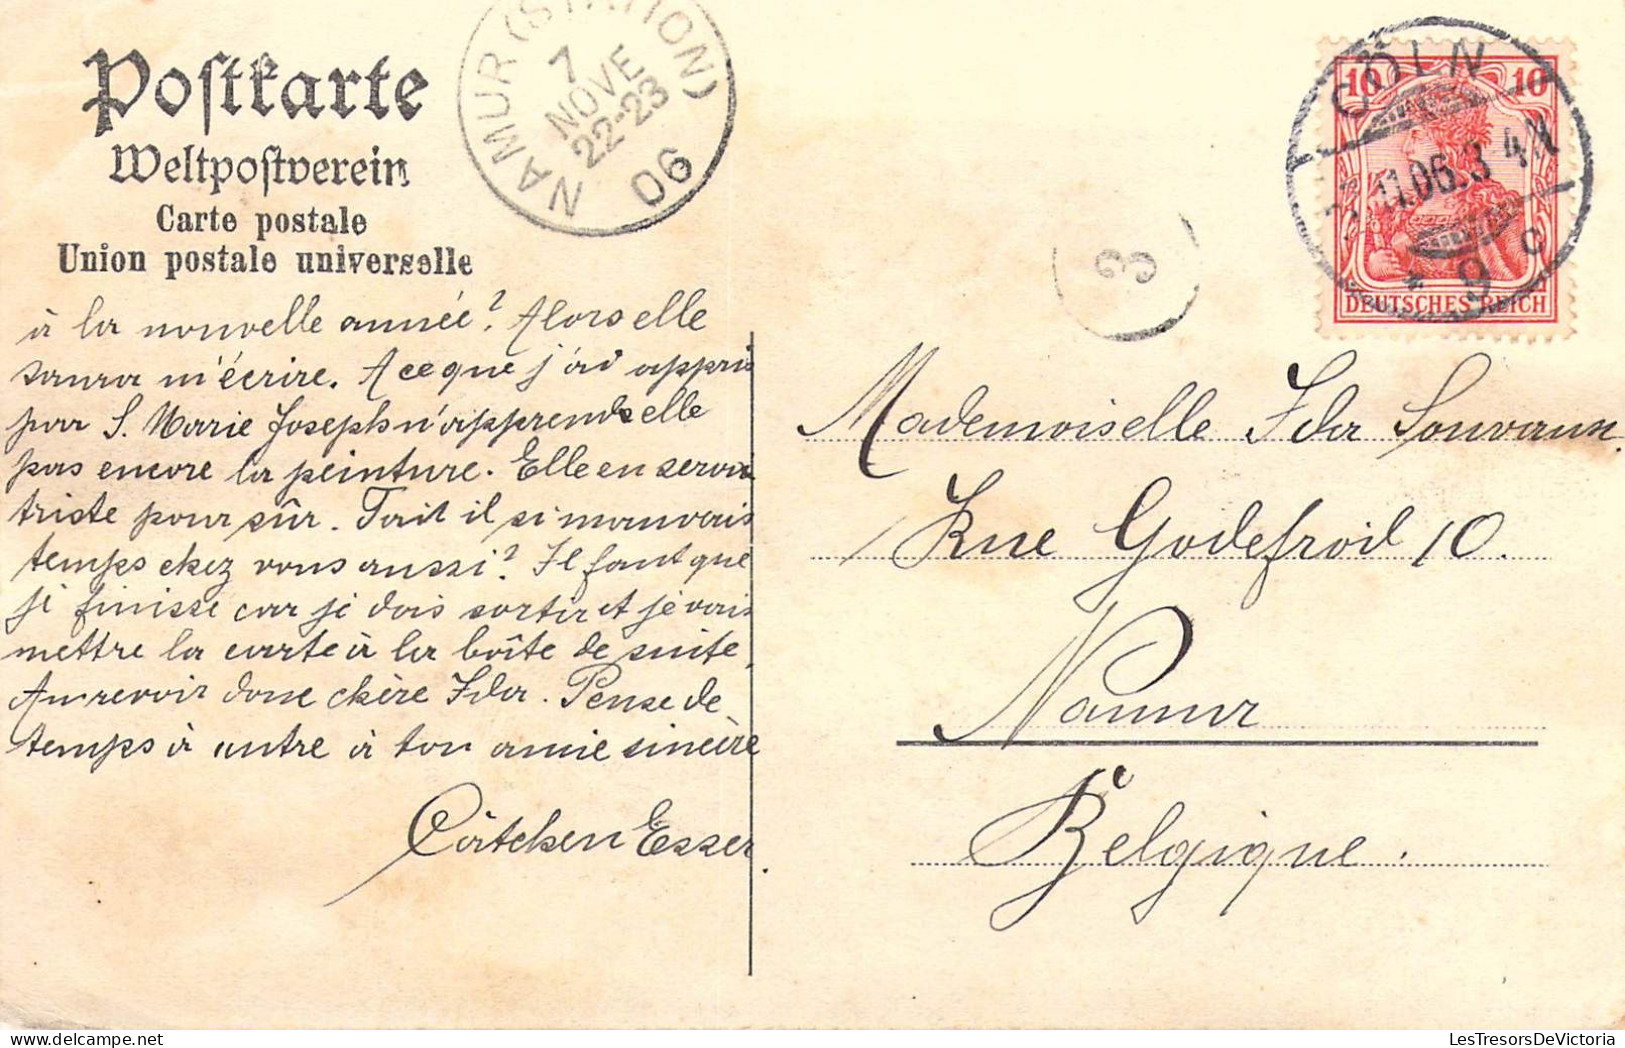 Postkarte
Weltpostverein
Carte postale
Union postale universelle
NAMUR (STATION)
7
NOVE
22-23
06
CÖLN
11.06. 3-4 N
* 9 c
10 10
DEUTSCHES REICH
3
à la nouvelle année? Alors elle
saura m'écrire. A ce que j'ai appris
par S. Marie Joseph n'apprend elle
pas encore la peinture. Elle en serait
triste pour sûr. Fait il si mauvais
temps chez vous aussi? Il faut que
je finisse car je dois sortir et je vais
mettre la carte à la boîte de suite.
Au revoir donc chère Ida. Pense de
temps à autre à ton amie sincère
Cätchen Esser.
Mademoiselle Ida Souvaux
Rue Godefroid 10.
Namur
Belgique.
LesTresorsDeVictoria